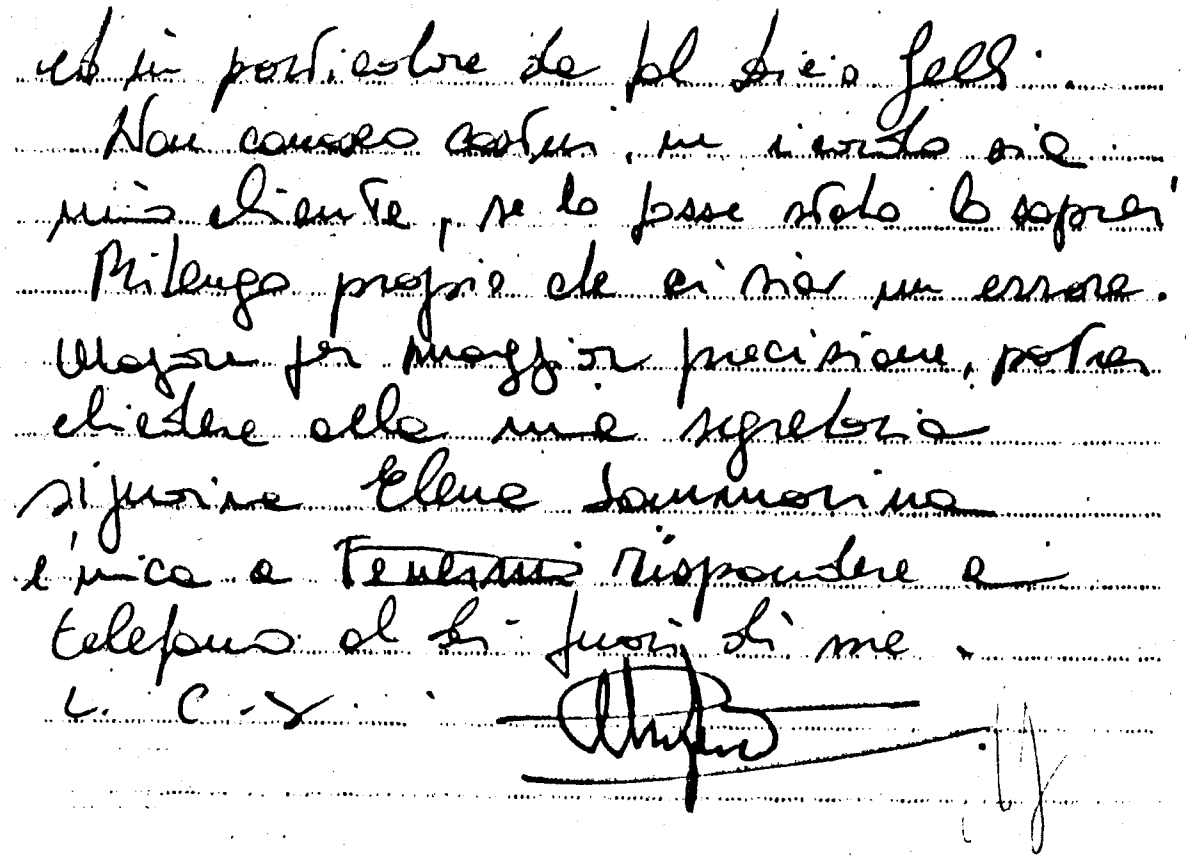 ed in particolare da tal Licio Gelli.
Non conosco costui, né ricordo sia
mio cliente, se lo fosse stato lo saprei
Ritengo proprio che ci sia un errore.
Magari per maggior precisione, potrei
chiedere alla mia segretaria
signorina Elena Sammarina
l'unica a rispondere a
telefono al di fuori di me.
L. C. S.